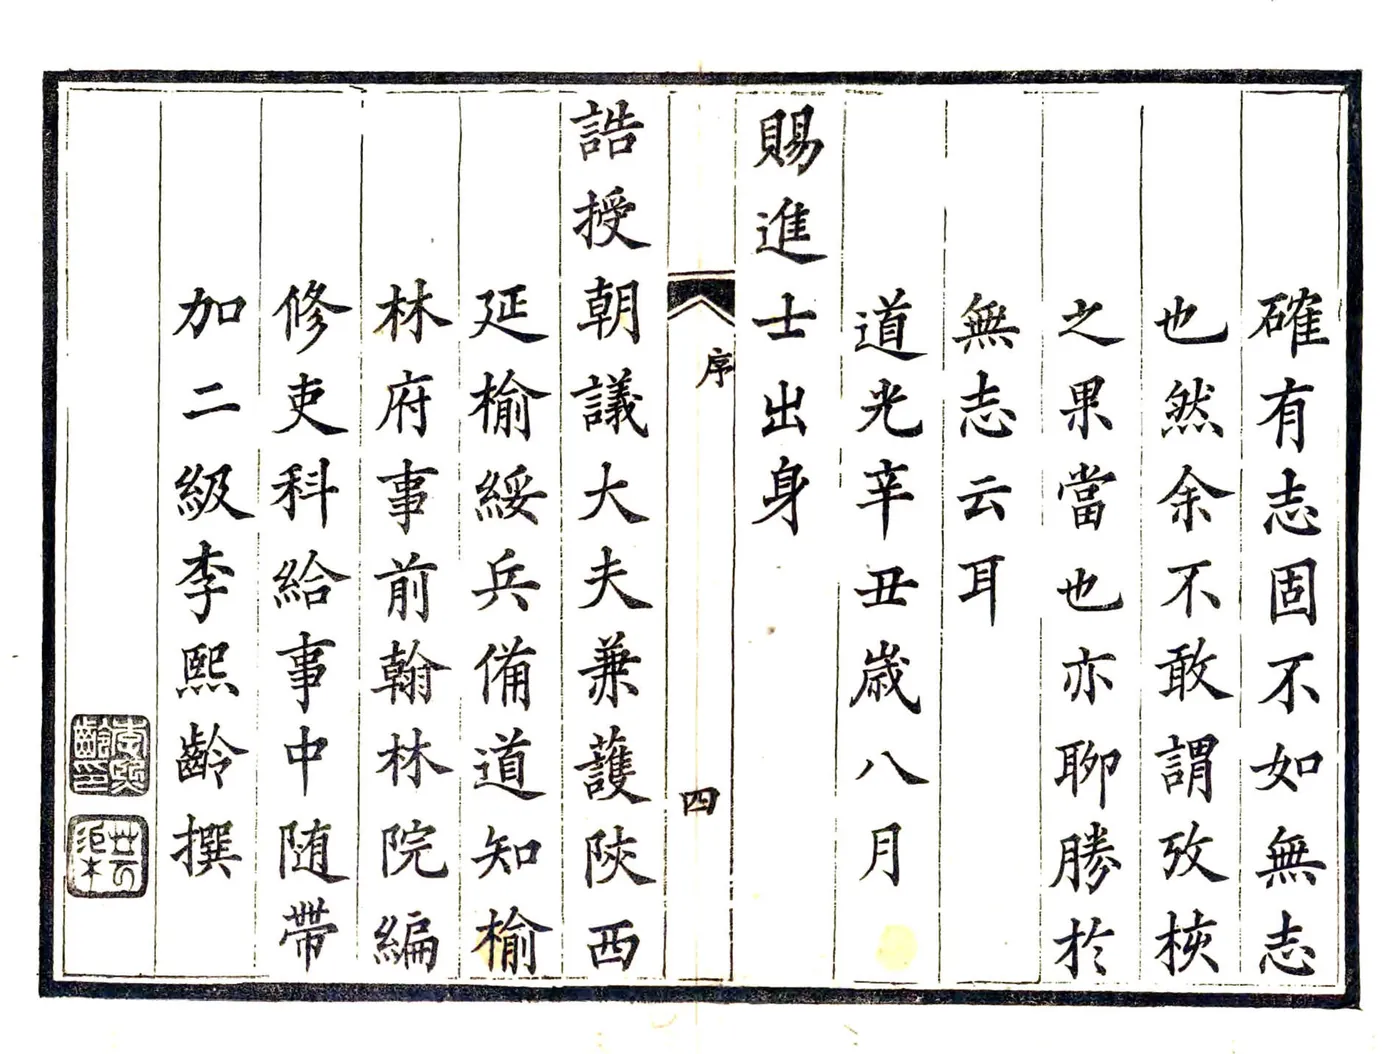 確有志固不如無志
也然余不敢謂攷核
之果當也亦聊勝於
無志云耳
道光辛丑歲八月
賜進士出身
序
四
誥授朝議大夫兼護陝西
延榆綏兵備道知榆
林府事前翰林院編
修吏科給事中随帶
加二級李熙齡撰
李熙齡印